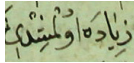 زياده اولمشدی